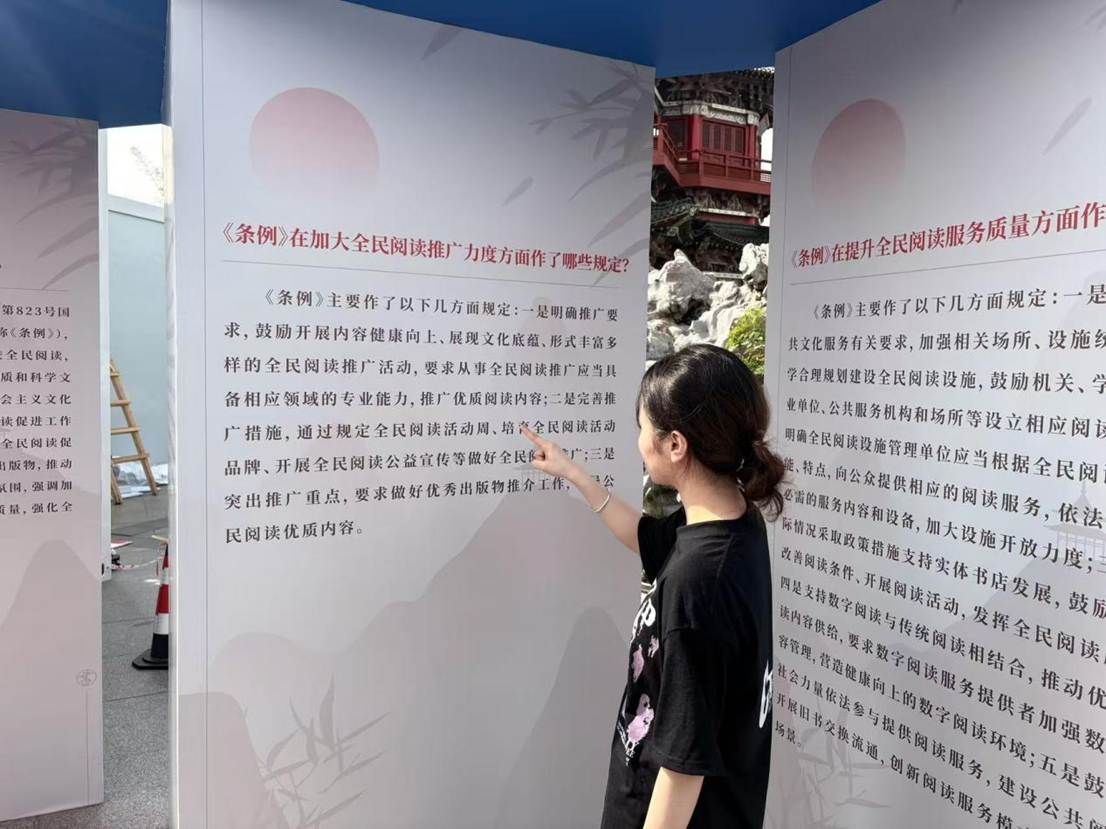 第823号国
称《条例》),
全民阅读,
质和科学文
会主义文化
读促进工作
民阅读促
出版物,推动
氛围,强调加
质量,强化全
《条例》在加大全民阅读推广力度方面作了哪些规定?
《条例》主要作了以下几方面规定:一是明确推广要
求,鼓励开展内容健康向上、展现文化底蕴、形式丰富多
样的全民阅读推广活动,要求从事全民阅读推广应当具
备相应领域的专业能力,推广优质阅读内容;二是完善推
广措施,通过规定全民阅读活动周、培育全民阅读活动
品牌、开展全民阅读公益宣传等做好全民阅读推广;三是
突出推广重点,要求做好优秀出版物推介工作,公
民阅读优质内容。
《条例》在提升全民阅读服务质量方面作
《条例》主要作了以下几方面规定:一是
共文化服务有关要求,加强相关场所、设施统
学合理规划建设全民阅读设施,鼓励机关、学
业单位、公共服务机构和场所等设立相应阅读
明确全民阅读设施管理单位应当根据全民阅读
能、特点,向公众提供相应的阅读服务,依法
必需的服务内容和设备,加大设施开放力度;三
际情况采取政策措施支持实体书店发展,鼓励
改善阅读条件、开展阅读活动,发挥全民阅读
四是支持数字阅读与传统阅读相结合,推动优
读内容供给,要求数字阅读服务提供者加强数
容管理,营造健康向上的数字阅读环境;五是鼓
社会力量依法参与提供阅读服务,建设公共阅
开展旧书交换流通,创新阅读服务模
场景。